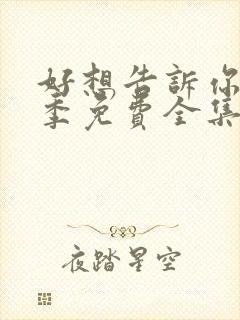 好想告訴你
季免費全集
夜踏星空